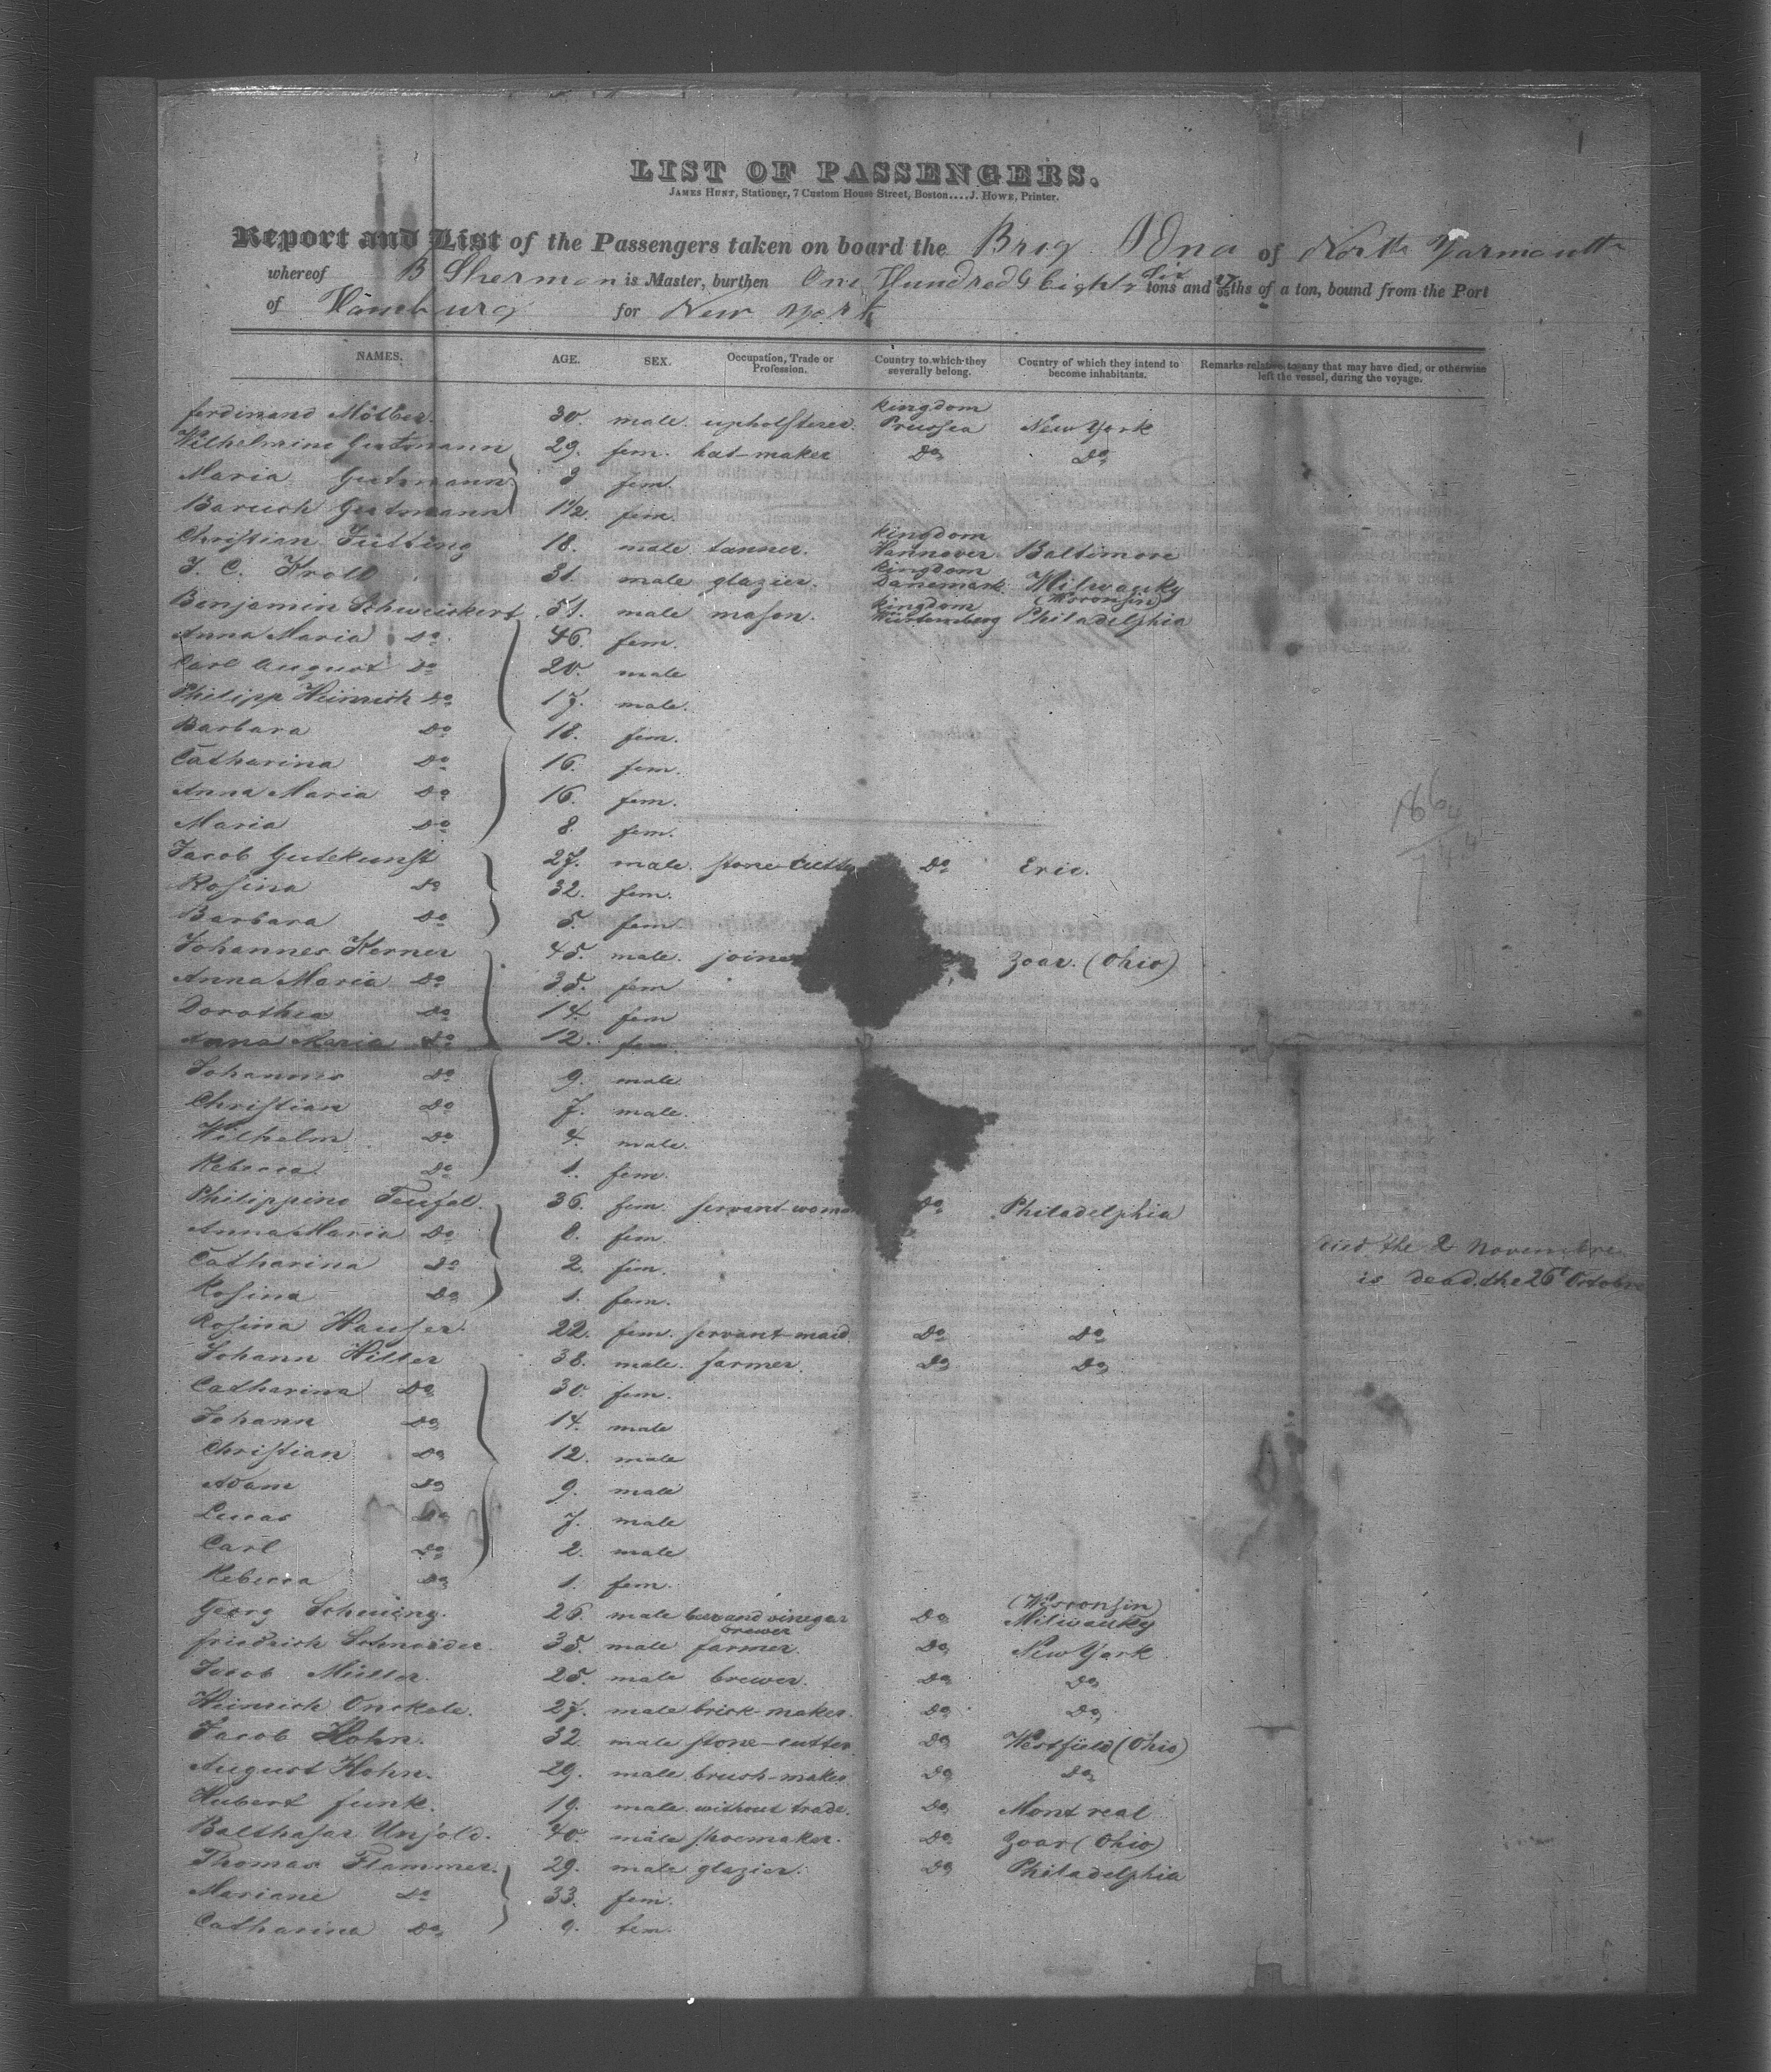 LIST OF PASSENGERS.
JAMES HUNT, Stationer, 7 Custom House Street, Boston....J. HOWE, Printer.
Report and List of the Passengers taken on board the Brig Edna of North Yarmouth
whereof B Sherman is Master, burthen One Hundred & Eighty Six tons and 27/95ths of a ton, bound from the Port
of Hamburg for New York
NAMES. AGE. SEX. Occupation, Trade or Profession. Country to which they severally belong. Country of which they intend to become inhabitants. Remarks relative to any that may have died, or otherwise left the vessel, during the voyage.
ferdinand 30. male. upholsterer. kingdom Prussia New York
Wilhelmine Gutsmann 29. fem. hat-maker Do Do
Maria Gutsmann 3 fem.
Baruch Gutsmann 1 1/2. fem.
Christian Jütting 18. male tanner. kingdom Hannover. Baltimore
J. C. Kroll 31. male glazier. kingdom Danemark. Milwauky (Wisconsin)
Benjamin Schweickert 51. male mason. kingdom Würtemberg Philadelphia
Anna Maria Do. 46. fem.
Carl August Do 20. male
Philipp Heinrich Do 17. male.
Barbara Do 18. fem.
Catharina Do 16. fem.
Anna Maria Do 16. fem.
Maria Do 8. fem.
Jacob Gutekunst 27. male. stone-cutter Do Erie.
Rosina Do 32. fem.
Barbara Do 5. fem
Johannes Kerner 45. male. joiner Zoar. (Ohio)
Anna Maria Do 35. fem
Dorothea Do 14. fem
Anna Maria Do 12. fem.
Johannes Do 9. male
Christian Do 7. male.
Wilhelm Do 4. male.
Rebecca Do 1. fem.
Philippine Teufel. 36. fem. servant-woman Do Philadelphia
Anna Maria Do 8. fem. died the 2 Novembre
Catharina Do 2. fem. is dead, the 26t Octobre
Rosina Do 1. fem.
Rosina Hauser. 22. fem. servant-maid Do Do
Johann Hiller 38. male. farmer. Do Do
Catharina Do 30. fem.
Johann Do 14. male
Christian Do 12. male
Adam Do 9. male
Lucas Do 7. male
Carl Do 2. male
Rebecca Do 1. fem.
Georg Scheuing. 26. male beer and vinegar brewer Do (Wisconsin) Milwauky
friedrich Schneider. 35. male farmer. Do New York
Jacob Müller. 25. male brewer. Do Do
Heinrich 27. male brick-maker. Do Do
Jacob Hohn. 32. male stone-cutter Do Westfield (Ohio)
August Hohn. 29. male brush-maker. Do Do
Hubert funk. 19. male. without trade. Do Montreal
Balthasar Unsöld. 40. male shoemaker. Do Zoar (Ohio)
Thomas Flammer. 29. male glazier. Do Philadelphia
Mariane Do 33. fem.
Catharina Do 9. fem.